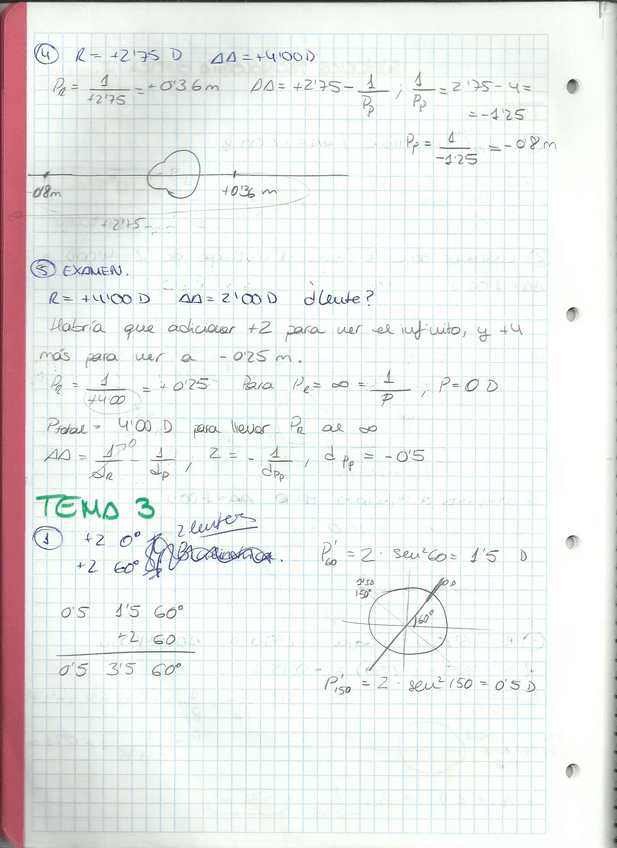 ④ R = +2'75 D   ΔA = +4'00 D
P_R = 1/+2'75 = +0'36 m   ΔA = +2'75 - 1/P_p ; 1/P_p = 2'75 - 4 =
= -1'25
P_p = 1/-1'25 = -0'8 m
-0'8 m   +0'36 m
+2'75
⑤ EXAMEN.
R = +4'00 D   ΔA = 2'00 D   ¿lente?
Habría que adicionar +2 para ver el infinito, y +4
más para ver a -0'25 m.
P_R = 1/+4'00 = +0'25   Para P_R = ∞ = 1/P ; P = 0 D
P_total = 4'00 D para llevar P_R al ∞
ΔA = 1/d_R - 1/d_p ; 2 = - 1/d_Pp ; d_Pp = -0'5
TEMA 3
① +2 0° 2 lentes
+2 60°
P'_60 = 2 · sen²60 = 1'5 D
0'5 1'5 60°
+2 60
0'5 3'5 60°
150°
60°
P'_150 = 2 · sen²150 = 0'5 D